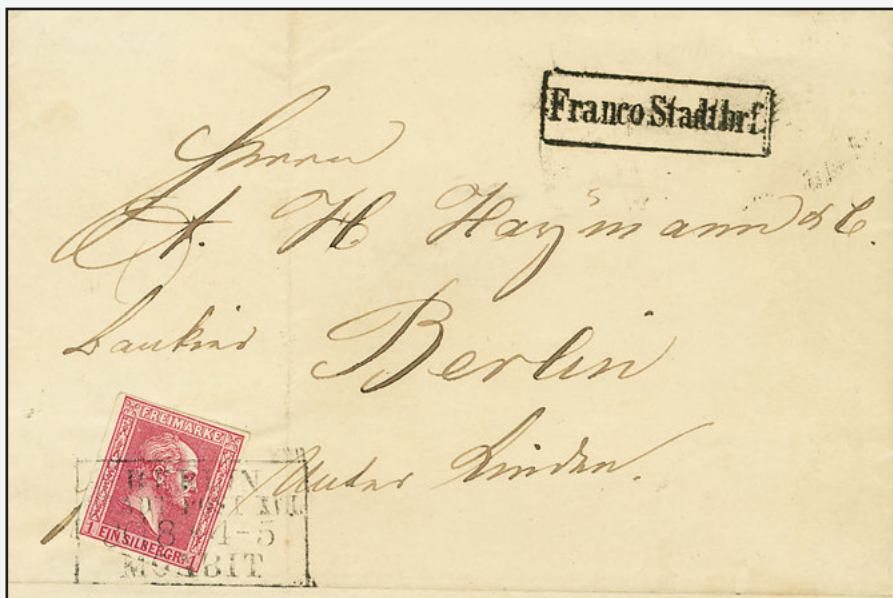 Franco Stadtbrf.
Herrn
A. H. Haymann & C.
Bankier
Berlin
Unter Linden.
FREIMARKE
1 EIN SILBERGR. 1
BERLIN
POST XVII.
8 4-5
MOABIT